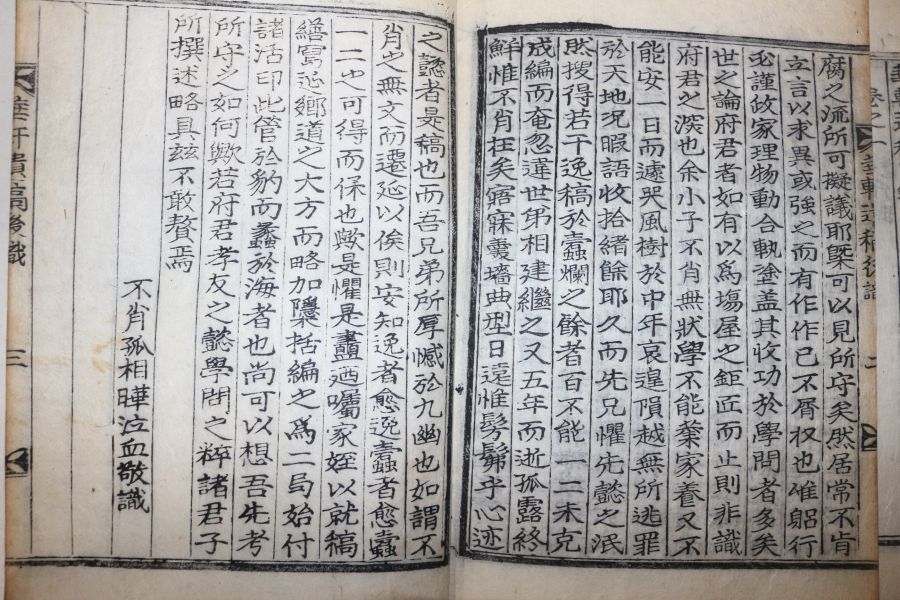 腐之流所可擬議耶槩可以見所守矣然居常不肯
立言以求異或強之而有作作已不屑收也惟躬行
必謹故家理物動合軌塗盖其收功於學問者多矣
世之論府君者如有以爲塲屋之鉅匠而止則非識
府君之深也余小子不肖無狀學不能葉家養又不
能安一日而遽哭風樹於中年哀遑隕越無所逃罪
於天地况暇語收拾緖餘耶久而先兄懼先懿之泯
然搜得若干逸稿於蠹爛之餘者百不能一二未克
成編而奄忽違世第相建繼之又五年而逝孤露終
鮮惟不肖在矣寤寐羹墻典型日遠惟髣髴乎心迹
之懿者是稿也而吾兄弟所厚憾於九幽也如謂不
肖之無文而遷延以俟則安知逸者愈逸蠹者愈蠹
一二之可得而保也歟是懼是衋廼囑家姪以就稿
繕寫远鄕道之大方而略加櫽括編之爲二局始付
諸活印此管於豹而蠡於海者也尚可以想吾先考
所守之如何歟若府君孝友之懿學問之粹諸君子
所撰述略具玆不敢贅焉
不肖孤相曄泣血敬識
遺稿後識
三